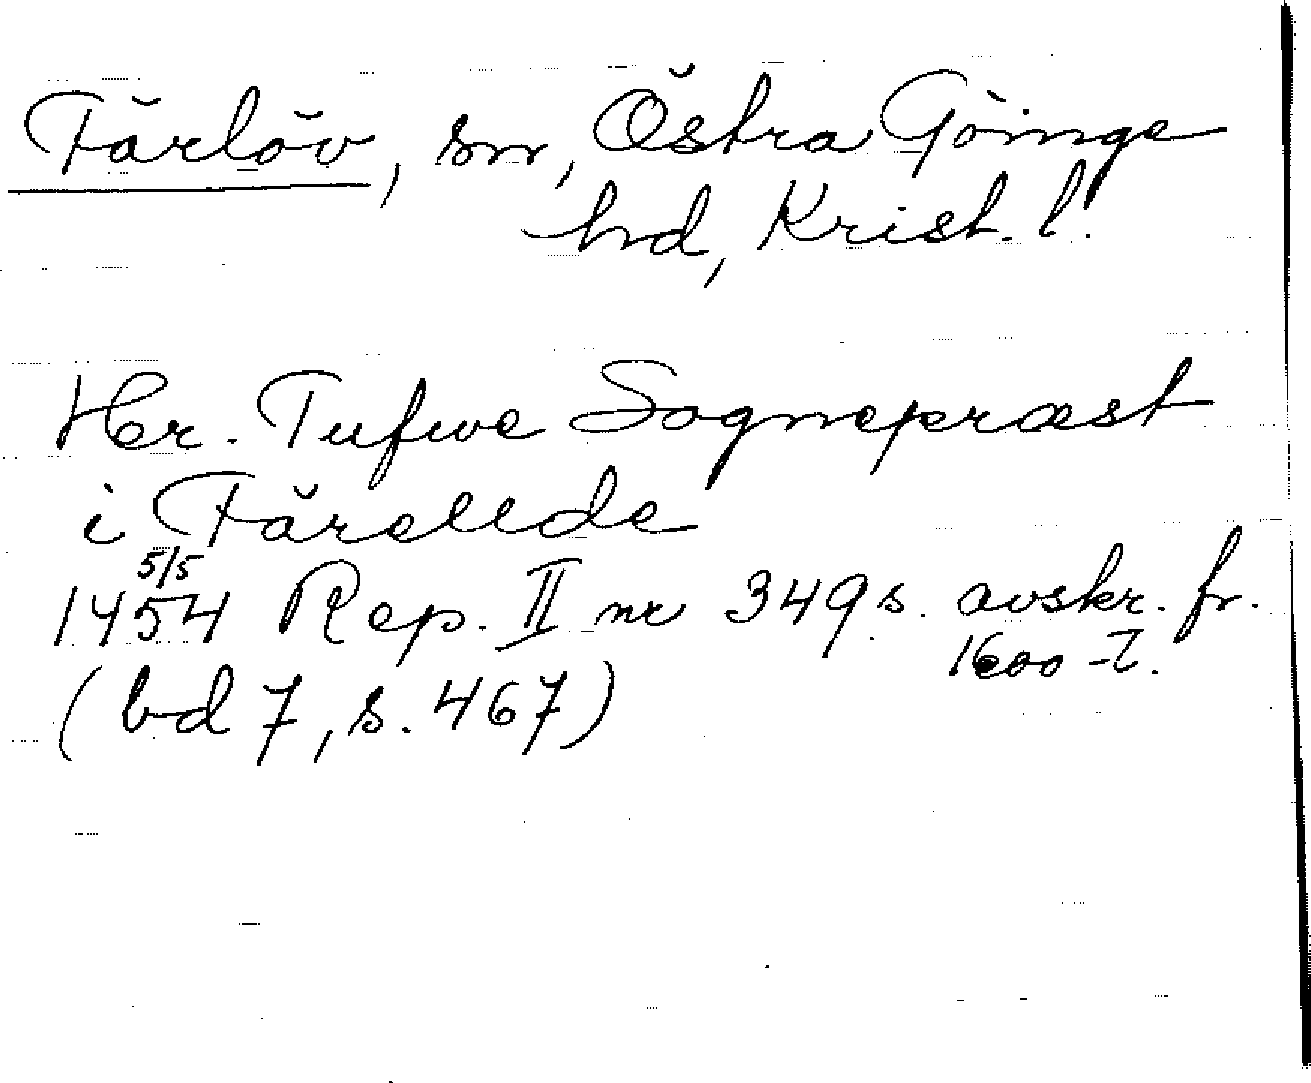 Färlöv, sn, Östra Göinge
hd, Krist. l.
Hr. Tufwe Sognepræst
i Färellde
5/5
1454 Rep. II nr 349 s. avskr. fr.
1600-t.
(bd 7, s. 467)